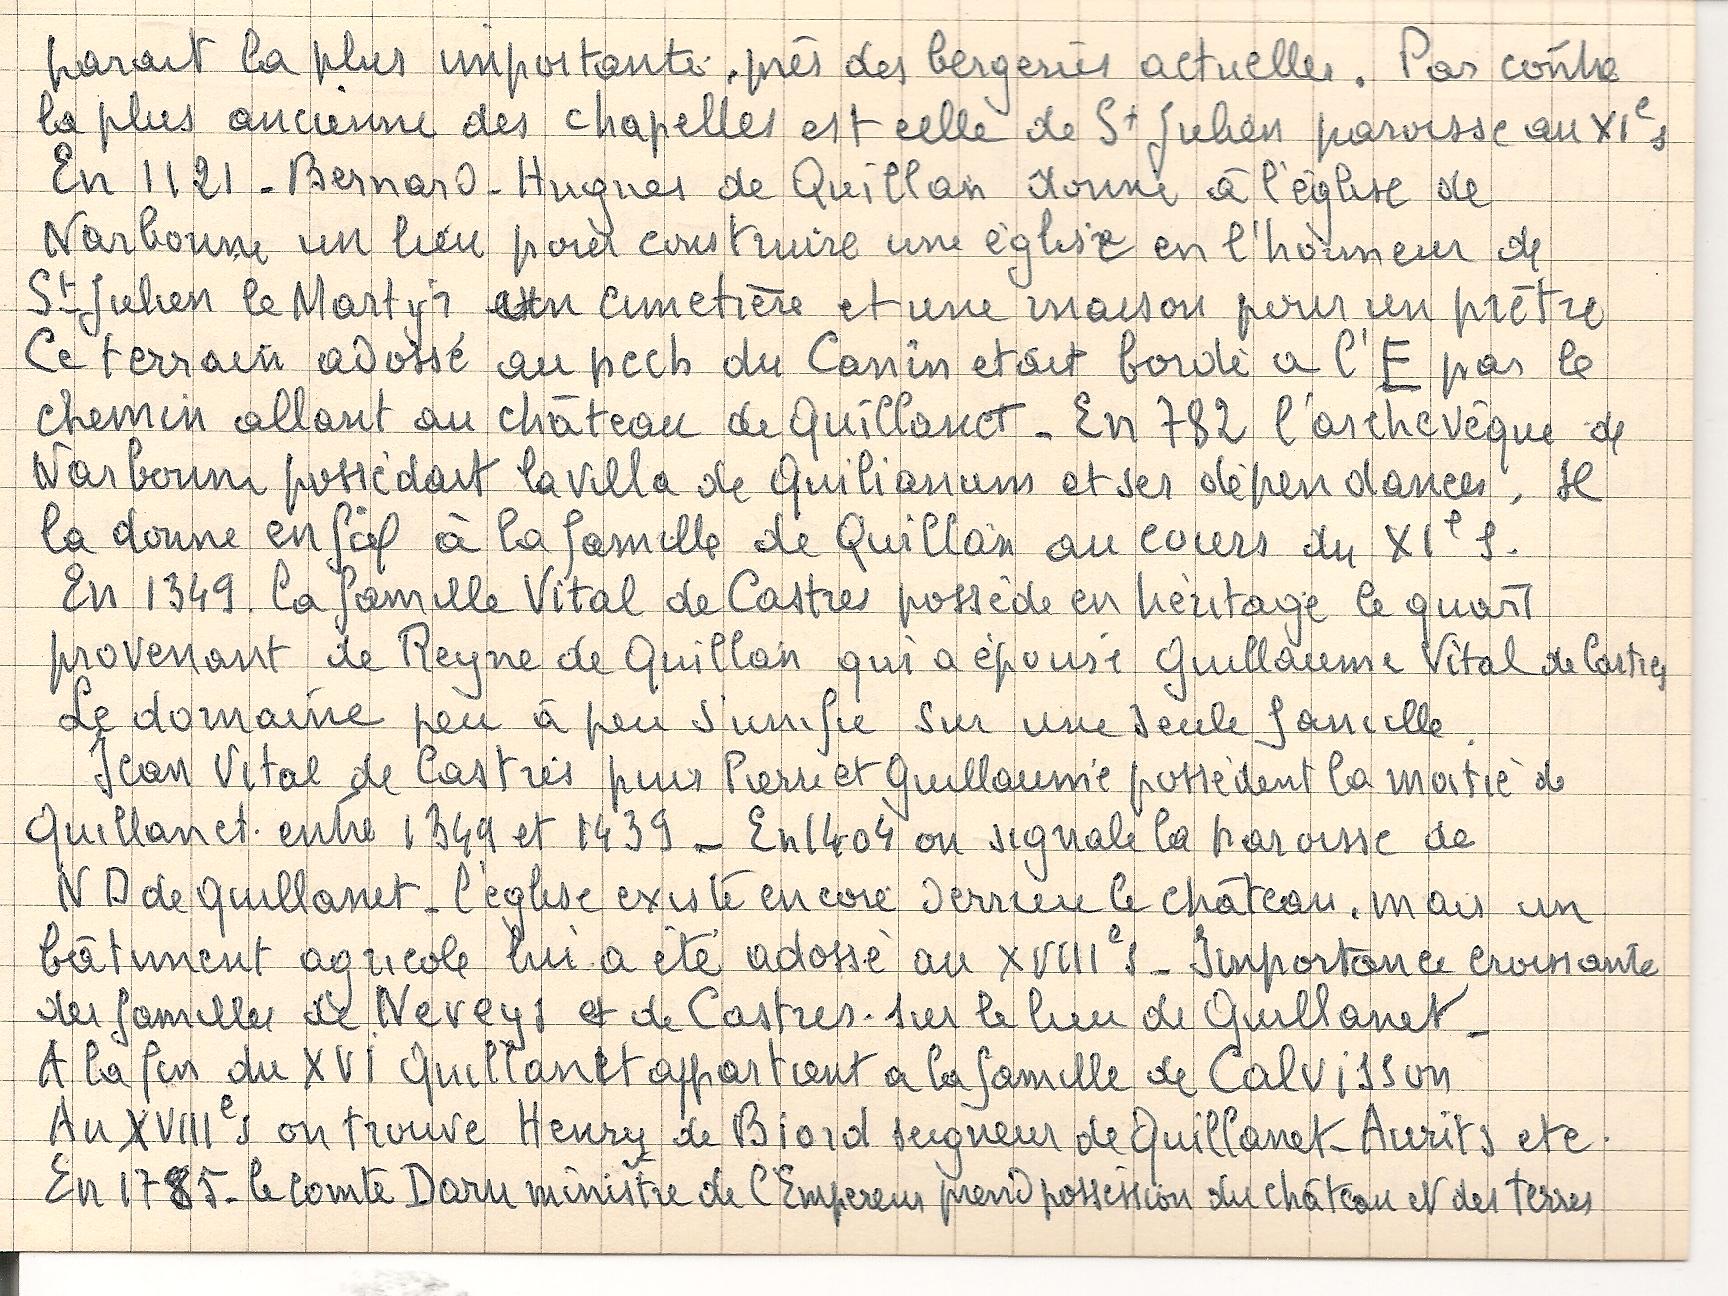 parait la plus importante. près des bergeries actuelles. Par contre
la plus ancienne des chapelles est celle de St Julien paroisse au XIe s
En 1121 - Bernard - Hugues de Quillan donne à l'église de
Narbonne un lieu pour construire une église en l'honneur de
St Julien le Martyr un cimetière et une maison pour un prêtre
Ce terrain adossé au pech du Canin etait bordé a l'E par le
chemin allant au château de Quillanet - En 782 l'archevêque de
Narbonne possédait la villa de Quilianum et ses dépendances, Il
la donne en fief à la famille de Quillan au cours du XIe s.
En 1349. la famille Vital de Castres possède en héritage le quart
provenant de Reyne de Quillan qui a épousé Guillaume Vital de Castres
Le domaine peu à peu s'unifie sur une seule famille.
Jean Vital de Castres puis Pierre et Guillaume possèdent la moitié de
Quillanet. entre 1349 et 1439 - En 1404 on signale la paroisse de
N D de Quillanet - l'église existe encore derrière le château. mais un
bâtiment agricole lui a été adossé au XVIIIe s - Importance croissante
des familles de Neveys et de Castres. sur le lieu de Quillanet -
A la fin du XVI Quillanet appartient a la famille de Calvisson
Au XVIIIe s on trouve Henry de Biord seigneur de Quillanet - Aurits etc.
En 1785 - le comte Daru ministre de l'Empereur prend possession du château et des terres